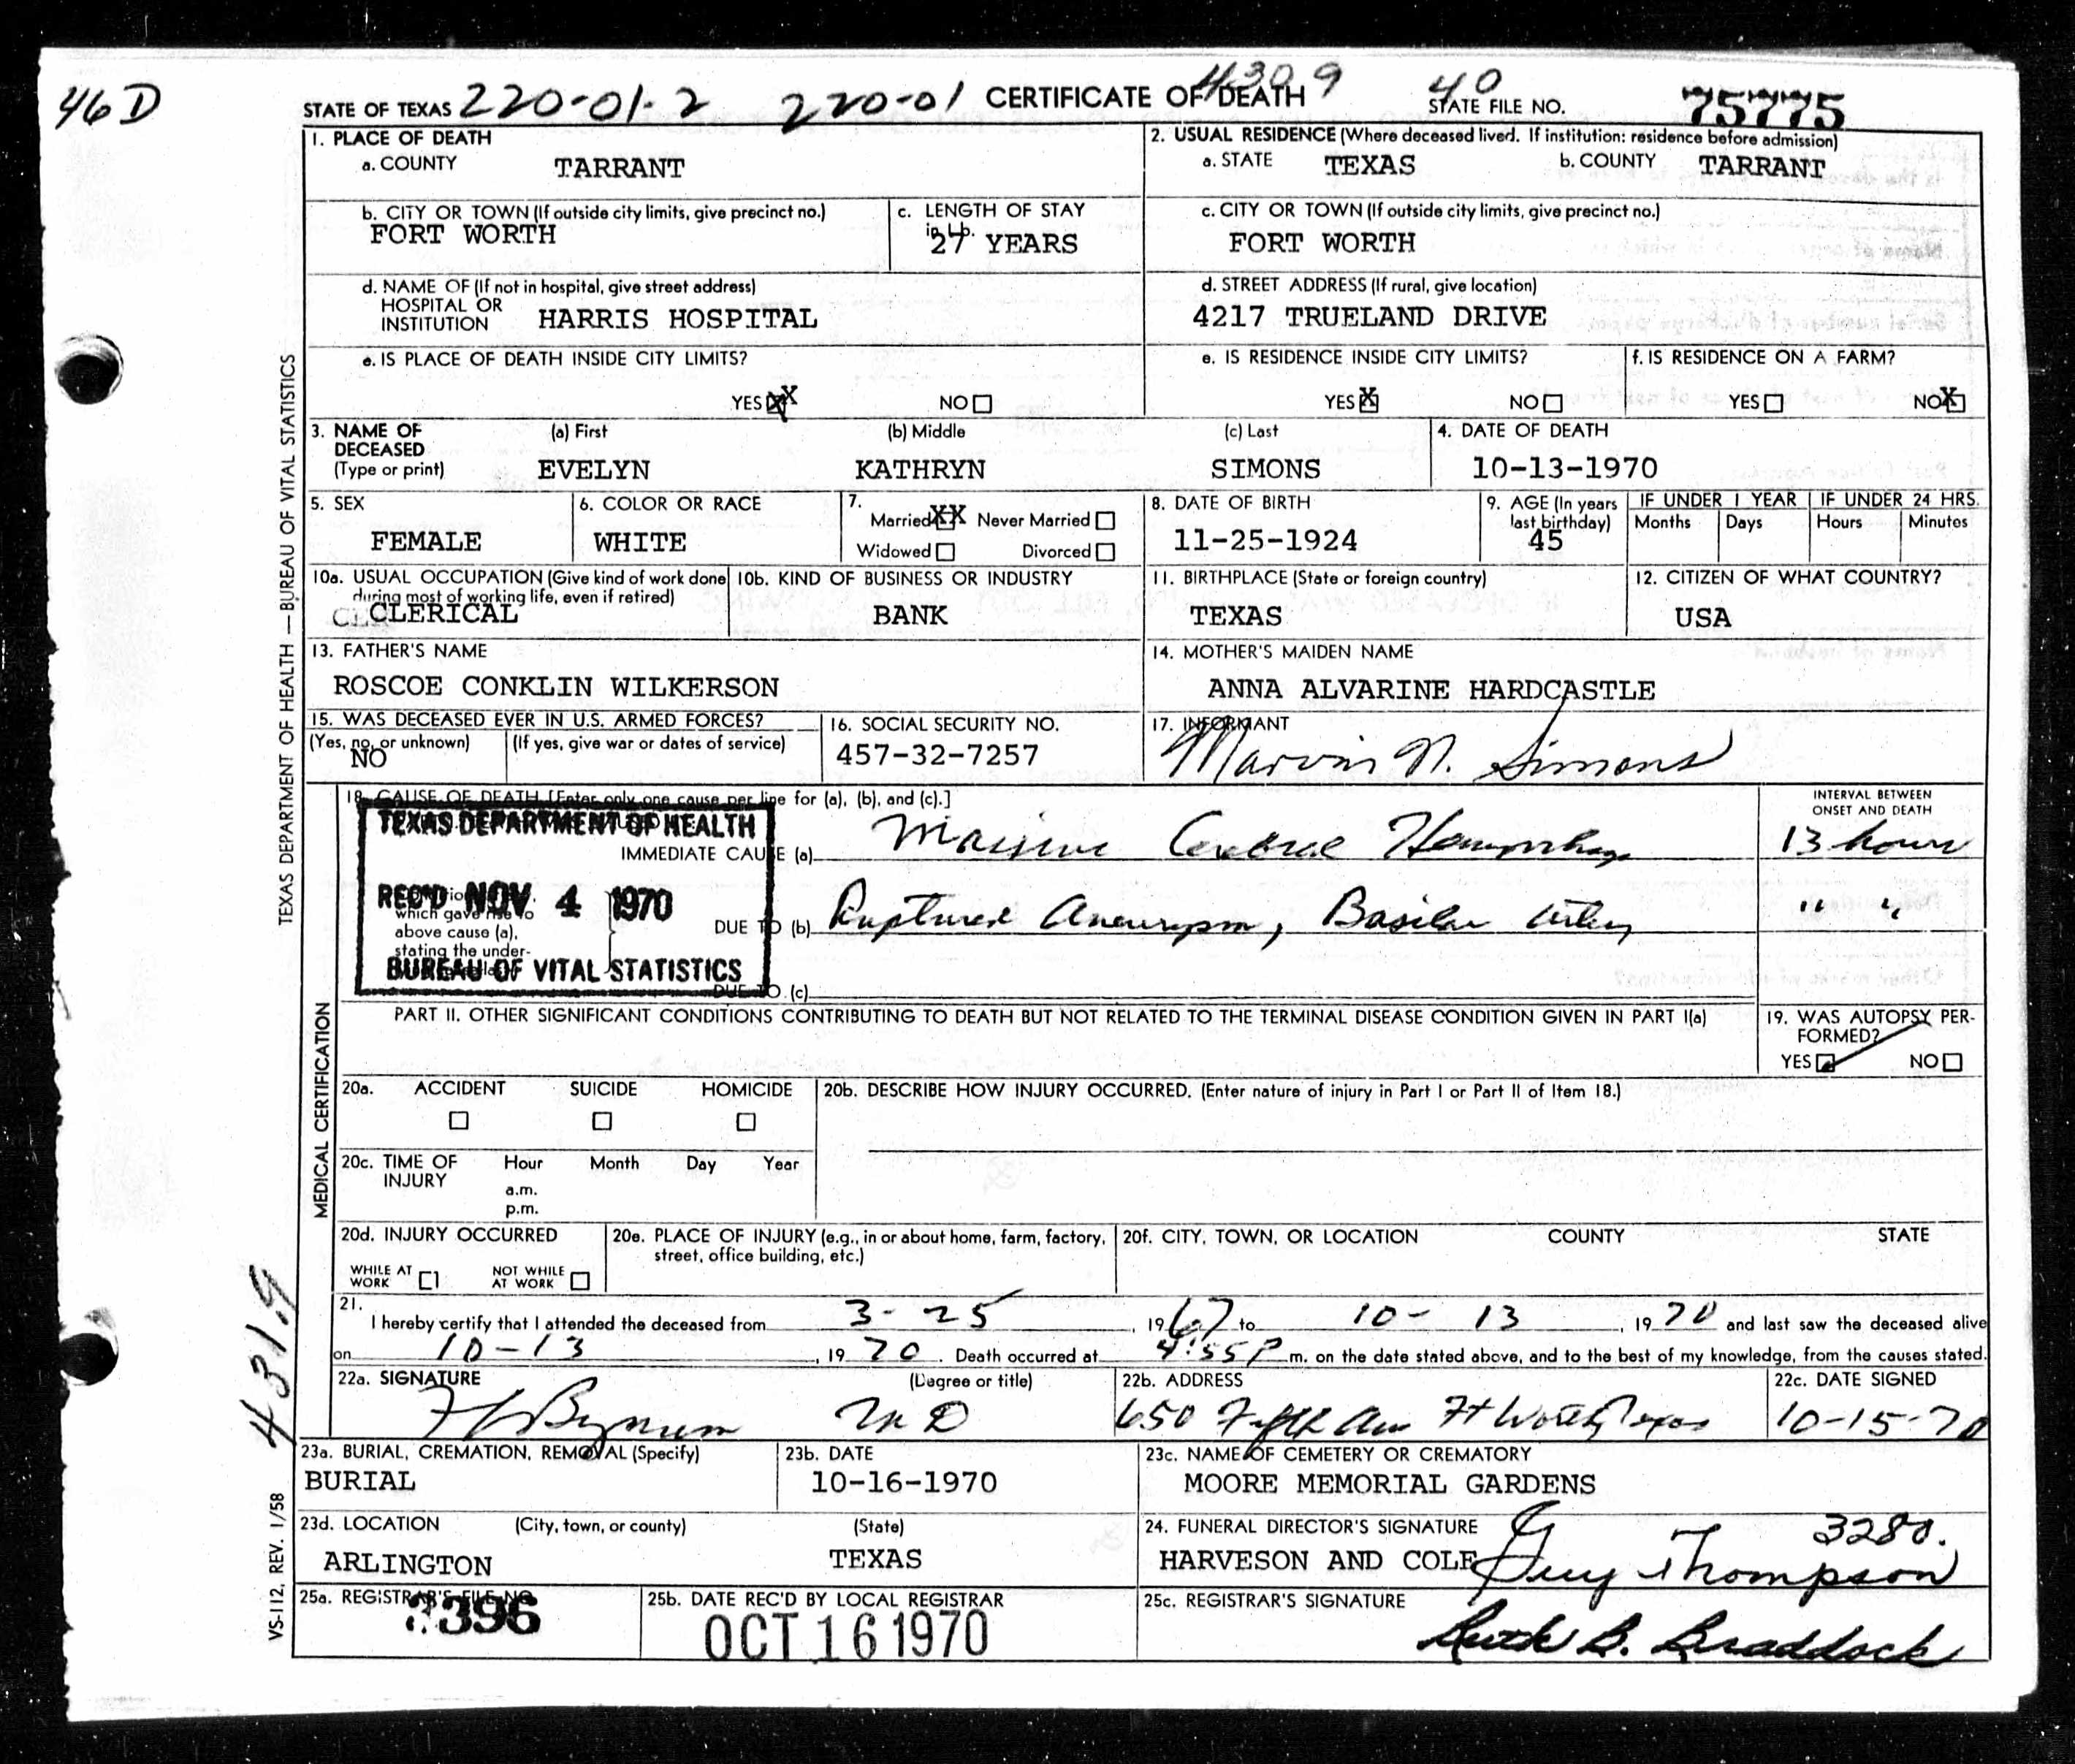 46D
STATE OF TEXAS 220-01-2 220-01 CERTIFICATE OF DEATH 4309 40 STATE FILE NO. 75775
1. PLACE OF DEATH
a. COUNTY TARRANT
2. USUAL RESIDENCE (Where deceased lived. If institution: residence before admission)
a. STATE TEXAS b. COUNTY TARRANT
b. CITY OR TOWN (If outside city limits, give precinct no.)
FORT WORTH
c. LENGTH OF STAY
in 1b.
27 YEARS
c. CITY OR TOWN (If outside city limits, give precinct no.)
FORT WORTH
d. NAME OF (If not in hospital, give street address)
HOSPITAL OR
INSTITUTION HARRIS HOSPITAL
d. STREET ADDRESS (If rural, give location)
4217 TRUELAND DRIVE
e. IS PLACE OF DEATH INSIDE CITY LIMITS?
YES X NO
e. IS RESIDENCE INSIDE CITY LIMITS?
YES X NO
f. IS RESIDENCE ON A FARM?
YES NO X
3. NAME OF DECEASED (Type or print)
(a) First (b) Middle (c) Last
EVELYN KATHRYN SIMONS
4. DATE OF DEATH
10-13-1970
5. SEX
FEMALE
6. COLOR OR RACE
WHITE
7.
Married XX Never Married
Widowed Divorced
8. DATE OF BIRTH
11-25-1924
9. AGE (In years
last birthday)
45
IF UNDER 1 YEAR IF UNDER 24 HRS.
Months Days Hours Minutes
10a. USUAL OCCUPATION (Give kind of work done
during most of working life, even if retired)
CLERICAL
10b. KIND OF BUSINESS OR INDUSTRY
BANK
11. BIRTHPLACE (State or foreign country)
TEXAS
12. CITIZEN OF WHAT COUNTRY?
USA
13. FATHER'S NAME
ROSCOE CONKLIN WILKERSON
14. MOTHER'S MAIDEN NAME
ANNA ALVARINE HARDCASTLE
15. WAS DECEASED EVER IN U.S. ARMED FORCES?
(Yes, no, or unknown) (If yes, give war or dates of service)
NO
16. SOCIAL SECURITY NO.
457-32-7257
17. INFORMANT
Marvin N. Simons
18. CAUSE OF DEATH [Enter only one cause per line for (a), (b), and (c).]
INTERVAL BETWEEN
ONSET AND DEATH
TEXAS DEPARTMENT OF HEALTH
REC'D NOV 4 1970
BUREAU OF VITAL STATISTICS
IMMEDIATE CAUSE (a) Massive Cerebral Hemorrhage 13 hours
which gave rise to
above cause (a),
stating the under-
DUE TO (b) Ruptured Aneurysm, Basilar Artery " "
DUE TO (c)
PART II. OTHER SIGNIFICANT CONDITIONS CONTRIBUTING TO DEATH BUT NOT RELATED TO THE TERMINAL DISEASE CONDITION GIVEN IN PART I(a)
19. WAS AUTOPSY PER-
FORMED?
YES NO
20a. ACCIDENT SUICIDE HOMICIDE
20b. DESCRIBE HOW INJURY OCCURRED. (Enter nature of injury in Part I or Part II of Item 18.)
20c. TIME OF INJURY
Hour Month Day Year
a.m.
p.m.
20d. INJURY OCCURRED
WHILE AT WORK NOT WHILE AT WORK
20e. PLACE OF INJURY (e.g., in or about home, farm, factory,
street, office building, etc.)
20f. CITY, TOWN, OR LOCATION COUNTY STATE
21.
I hereby certify that I attended the deceased from 3-25, 1967 to 10-13, 1970 and last saw the deceased alive
on 10-13, 1970. Death occurred at 4:55 P m. on the date stated above, and to the best of my knowledge, from the causes stated.
22a. SIGNATURE (Degree or title)
Bynum MD
22b. ADDRESS
650 Fifth Ave Ft Worth, Texas
22c. DATE SIGNED
10-15-70
23a. BURIAL, CREMATION, REMOVAL (Specify)
BURIAL
23b. DATE
10-16-1970
23c. NAME OF CEMETERY OR CREMATORY
MOORE MEMORIAL GARDENS
23d. LOCATION (City, town, or county) (State)
ARLINGTON TEXAS
24. FUNERAL DIRECTOR'S SIGNATURE 3280.
HARVESON AND COLE Guy Thompson
25a. REGISTRAR'S FILE NO.
3396
25b. DATE REC'D BY LOCAL REGISTRAR
OCT 16 1970
25c. REGISTRAR'S SIGNATURE
Ruth B. Braddock
TEXAS DEPARTMENT OF HEALTH — BUREAU OF VITAL STATISTICS
MEDICAL CERTIFICATION
431.9
VS-112, REV. 1/58